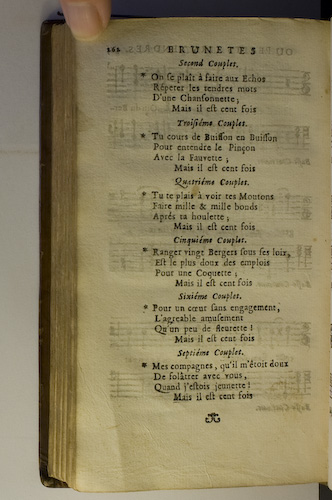 262 BRUNETES
Second Couplet.
* On se plaît à faire aux Echos
Répeter les tendres mots
D'une Chansonnette;
Mais il est cent fois
Troisiéme Couplet.
* Tu cours de Buisson en Buisson
Pour entendre le Pinçon
Avec la Fauvette;
Mais il est cent fois
Quatriéme Couplet.
* Tu te plais à voir tes Moutons
Faire mille & mille bonds
Aprés ta houlette;
Mais il est cent fois
Cinquiéme Couplet.
* Ranger vingt Bergers sous ses loix,
Est le plus doux des emplois
Pour une Coquette;
Mais il est cent fois
Sixiéme Couplet.
* Pour un cœur sans engagement,
L'agreable amusement
Qu'un peu de fleurette!
Mais il est cent fois
Septiéme Couplet.
* Mes compagnes, qu'il m'étoit doux
De folâtrer avec vous,
Quand j'estois jeunette!
Mais il est cent fois